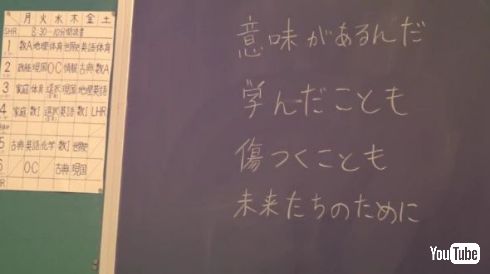 月 火 水 木 金 土
SHR 8:30-10分間読書
1 数A 地理 体育 世史 英語 体育
2 現国 OC 情報 古典 数A
3 家庭 体育 選択 現国 地理 英語
4 家庭 数I 選択 英語 数I LHR
5 古典 英語 化学 数I 世史
OC 古典 現国
意味があるんだ
学んだことも
傷つくことも
未来たちのために
YouTube